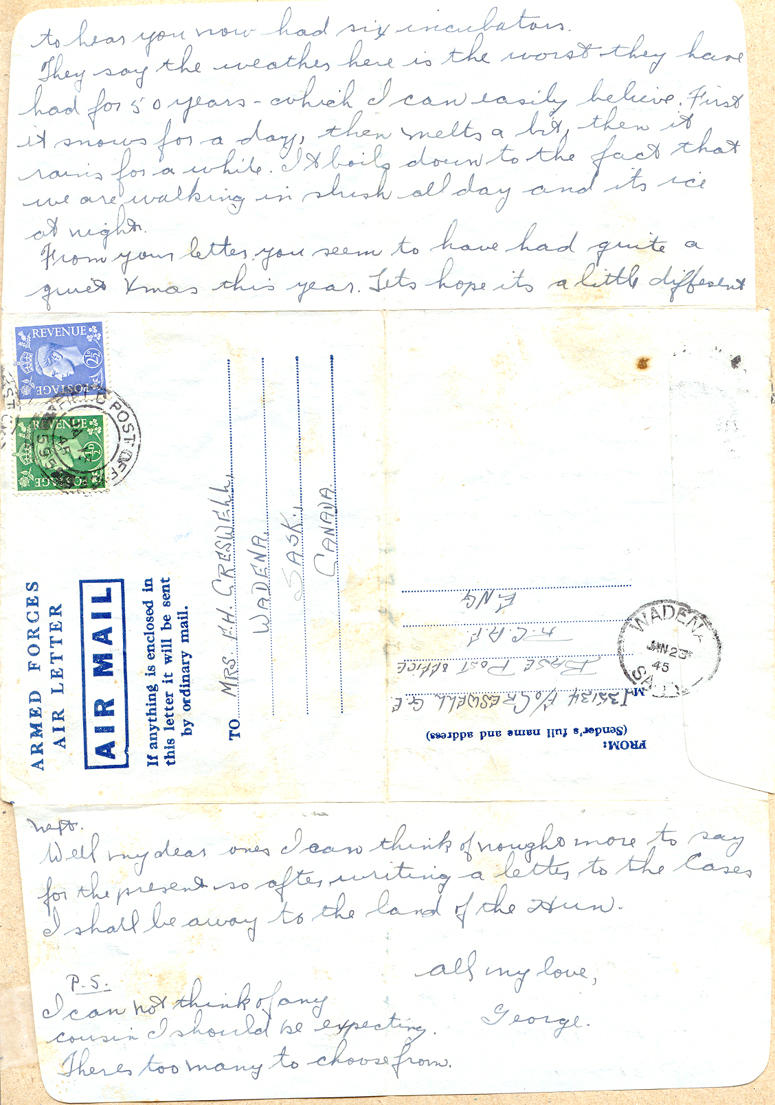 to hear you now had six incubators.
They say the weather here is the worst they have
had for 50 years - which I can easily believe. First
it snows for a day, then melts a bit, then it
rains for a while. It boils down to the fact that
we are walking in slush all day and its ice
at night.
From your letter you seem to have had quite a
quiet Xmas this year. Lets hope its a little different
REVENUE
2½D
POSTAGE
REVENUE
½D
POSTAGE
FIELD POST OFFICE
45
595
ARMED FORCES
AIR LETTER
AIR MAIL
If anything is enclosed in
this letter it will be sent
by ordinary mail.
TO MRS. F.H. CRESWELL,
WADENA,
SASK.,
CANADA.
FROM:
(Sender's full name and address)
J35134 F/O CRESWELL G.E
BASE POST OFFICE
R.C.A.F
ENG
WADENA
JAN 23
45
SASK
next.
Well my dear ones I can think of nought more to say
for the present so after writing a letter to the Cases
I shall be away to the land of the Hun.
All my love,
George.
P.S.
I can not think of any
cousin I should be expecting.
Theres too many to choose from.